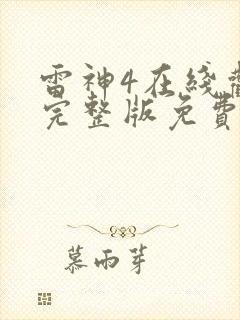 雷神4在线觀
完整版免費
慕雨芽